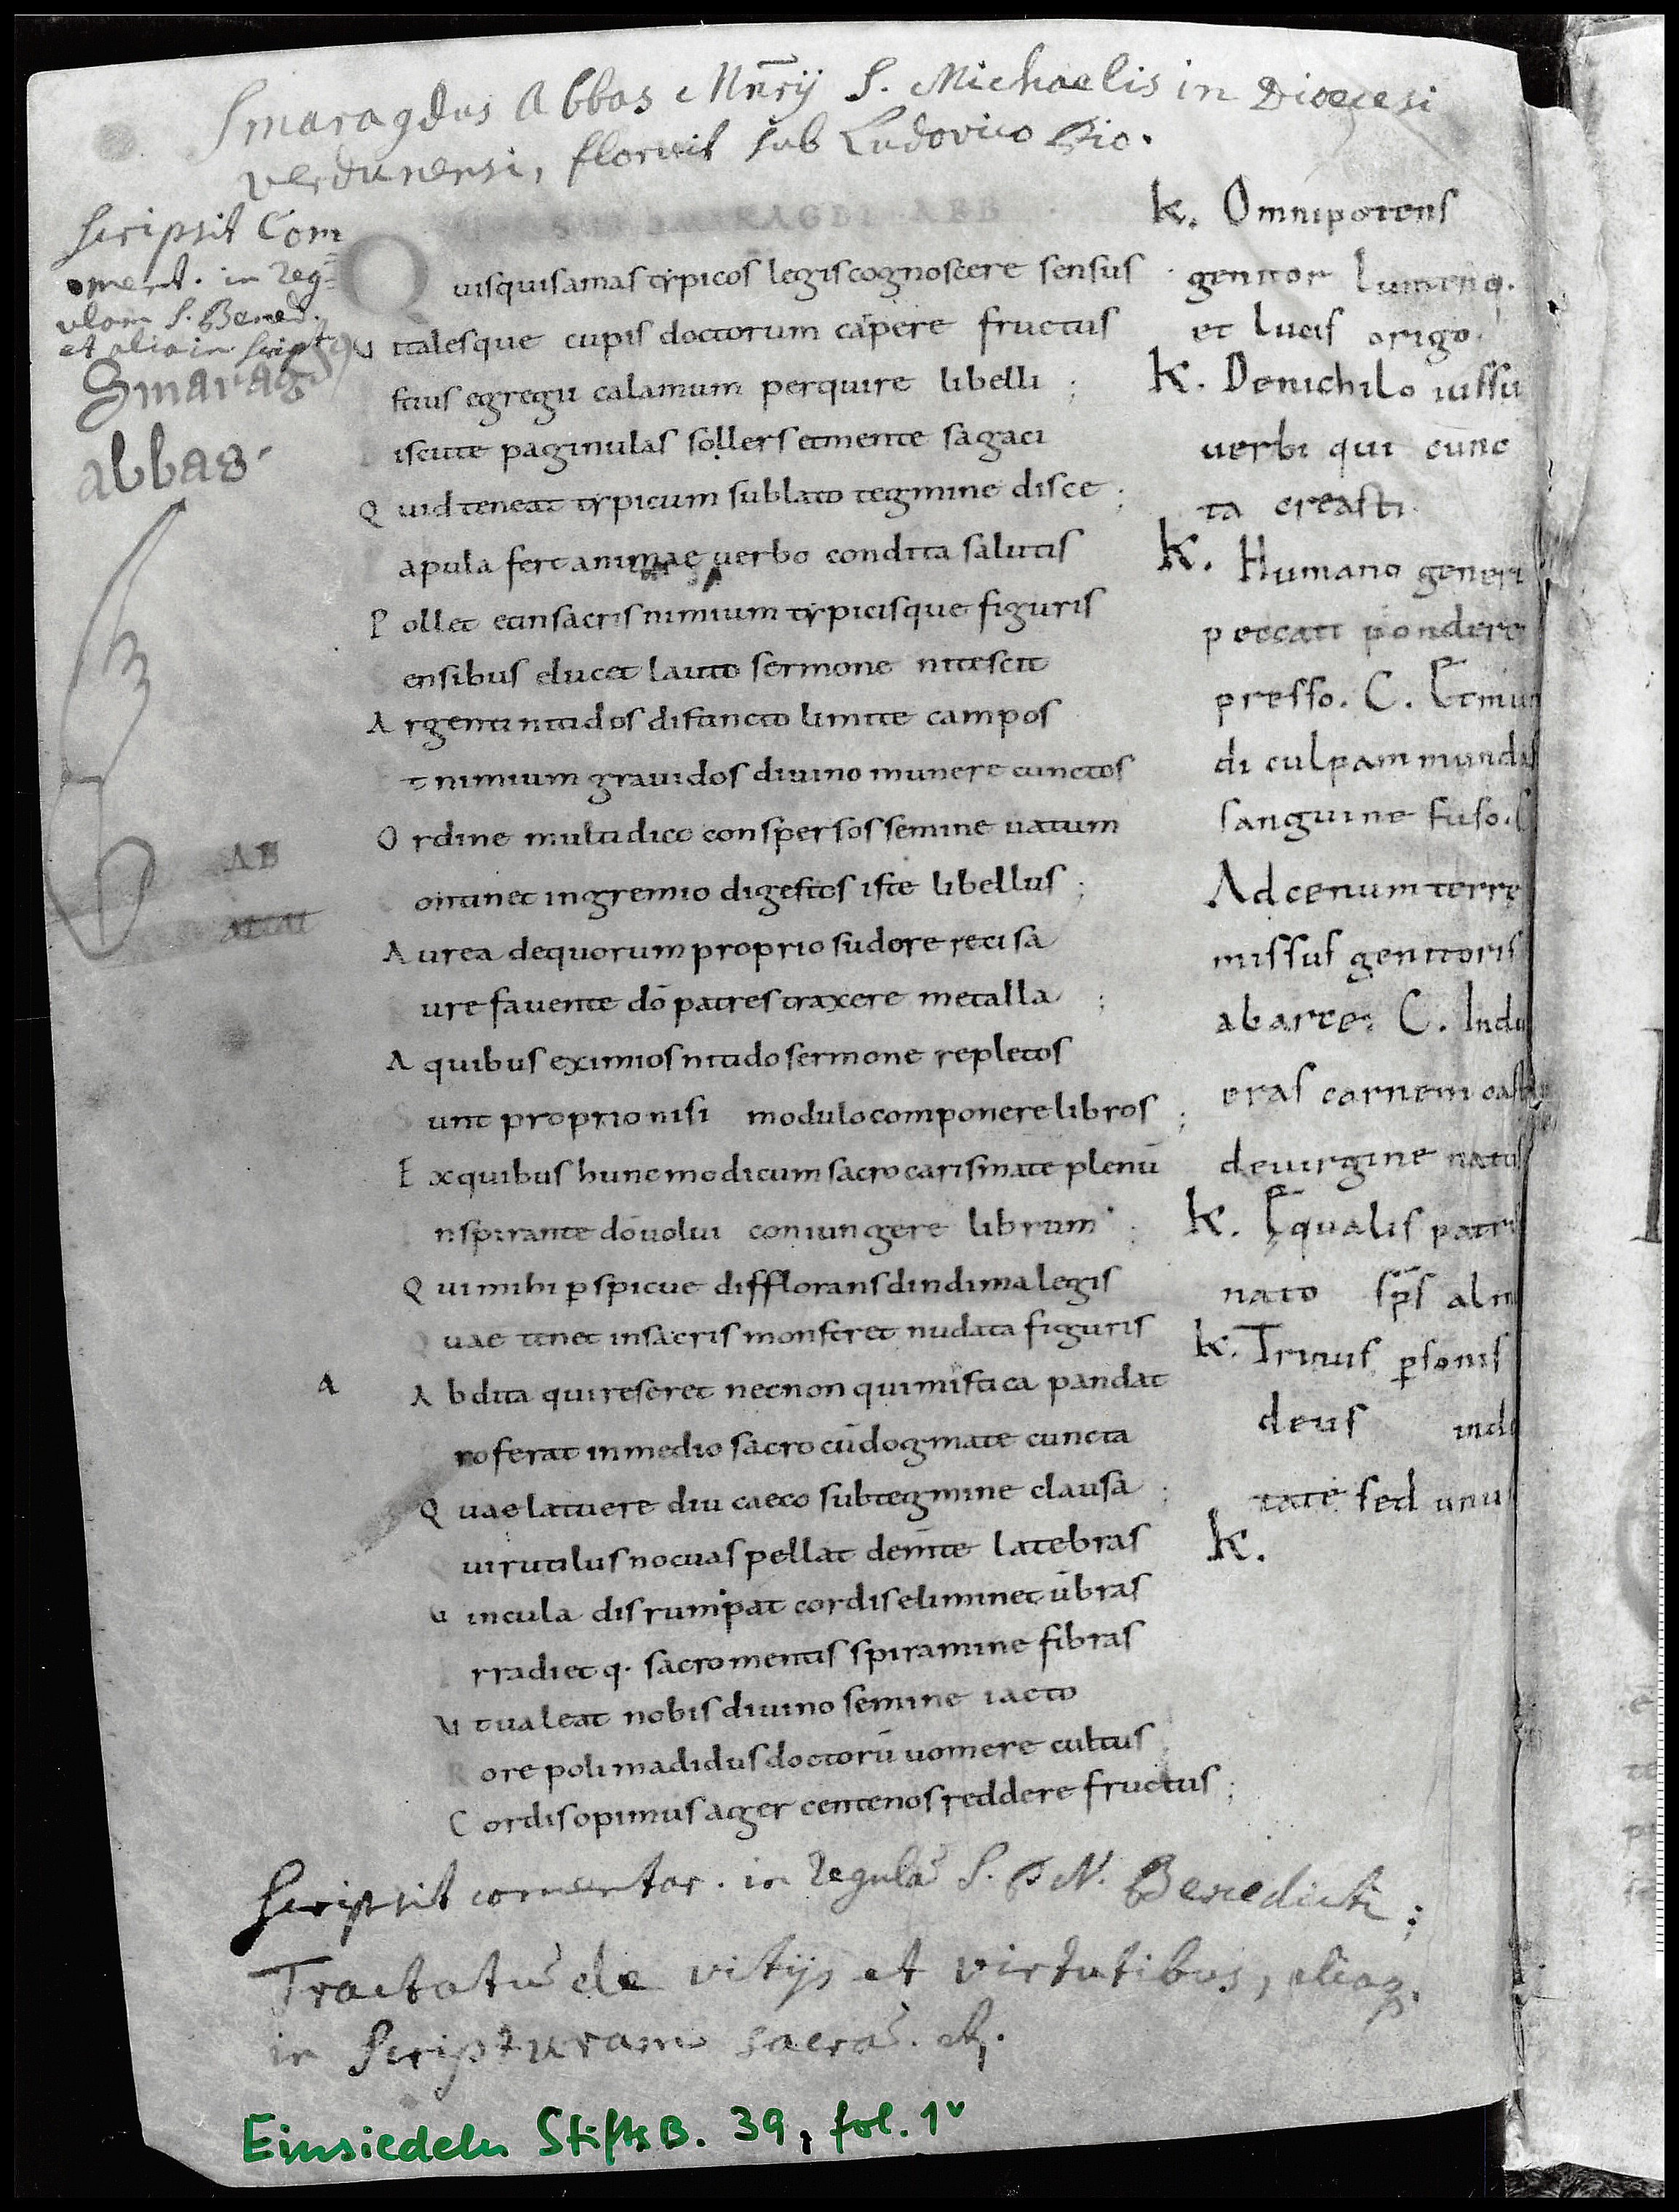 Smaragdus Abbas Mn̄rij S. Michaelis in Diocesi
Verdunensi, floruit sub Ludovico Pio.
Scripsit Com
ment. in Reg=
ulam S. Bened.
et alia in script
Smaragd
abbas.
AB
RAGDI ABB
Q uisquis amas typicos legis cognoscere sensus
U itales que cupis doctorum capere fructus
stius egregii calamum perquire libelli ;
iscute paginulas sollers et mente sagaci
Q uid teneat typicum sublato tegmine disce ;
apula fert animae verbo condita salutis
P ollet et in sacris nimium typicisque figuris
ensibus elucet lauto sermone nitescit
A rgenti nitidos distincto limite campos
t nimium gravidos divino munere cunctos
O rdine multidico conspersos semine vatum
ontinet in gremio digestos iste libellus ;
A urea de quorum proprio sudore recisa
ure favente dō patres traxere metalla ;
A quibus eximios nitido sermone repletos
S unt proprio nisi modulo componere libros ;
E x quibus hunc modicum sacro carismate plenū
nspirante dō volui coniungere librum ;
Q ui mihi pspicue difflorans dindima legis
Q uae tenet in sacris monstret nudata figuris
A
A bdita qui reseret necnon qui mistica pandat
roferat in medio sacro cū dogmate cuncta
Q uae latuere diu caeco sub tegmine clausa ;
ui rutilus nocuas pellat de mte latebras
U incula disrumpat cordis eliminet ūbras
rradiet q. sacro mentis spiramine fibras
U t valeat nobis divino semine iacto
R ore poli madidus doctorū vomere cultus
C ordis opimus ager centenos reddere fructus ;
k. Omnipotens
genitor lumenq.
et lucis origo.
k. De nichilo iussu
verbi qui cunc
ta creasti.
k. Humano generi
peccati pondere
presso. C. Et
di culpam mundas
sanguine fuso. C
Ad cenum terrę
missus genitoris
ab arce. C. Indu
eras carnem
de virgine natus
k. Ęqualis patri
nato sp̄s alm
k. Trinus psonis
deus
tate sed unus
k.
Scripsit comentar. in Regulā S. P. N. Benedicti ;
Tractatū de vitijs et virtutibus, aliaq.
in Scripturam sacrā. etc.
Einsiedeln StiftsB. 39, fol. 1v